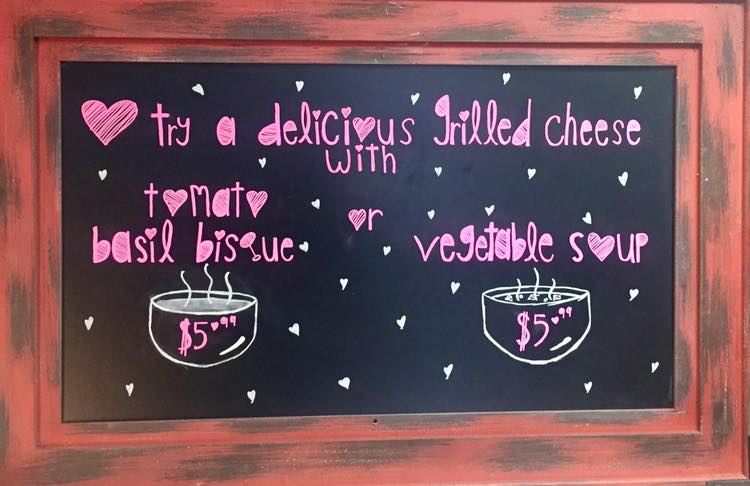 try a delicious grilled cheese
with
tomato
basil bisque
or
vegetable soup
$5.99
$5.99